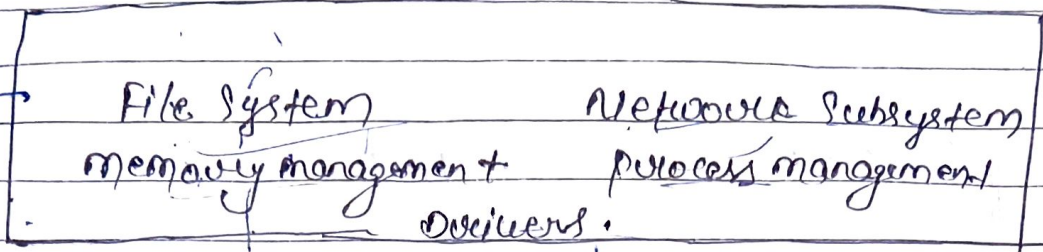 File System Network Subsystem
memory management process management
Drivers.